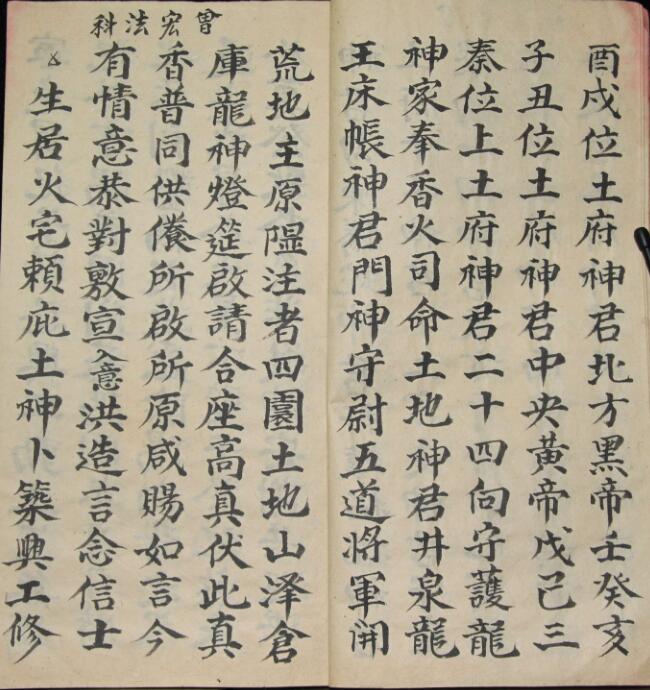 酉戍位土府神君北方黑帝壬癸亥
子丑位土府神君中央黃帝戊己三
秦位上土府神君二十四向守護龍
神家奉香火司命土地神君井泉龍
王床帳神君門神守尉五道将軍開
曾宏法科
荒地主原隰注者四園土地山泽倉
庫龍神燈筵啟請合座高真伏此真
香普同供養所啟所原咸賜如言今
有情意恭對敷宣入意洪造言念信士
生居火宅賴庇土神卜築興工修